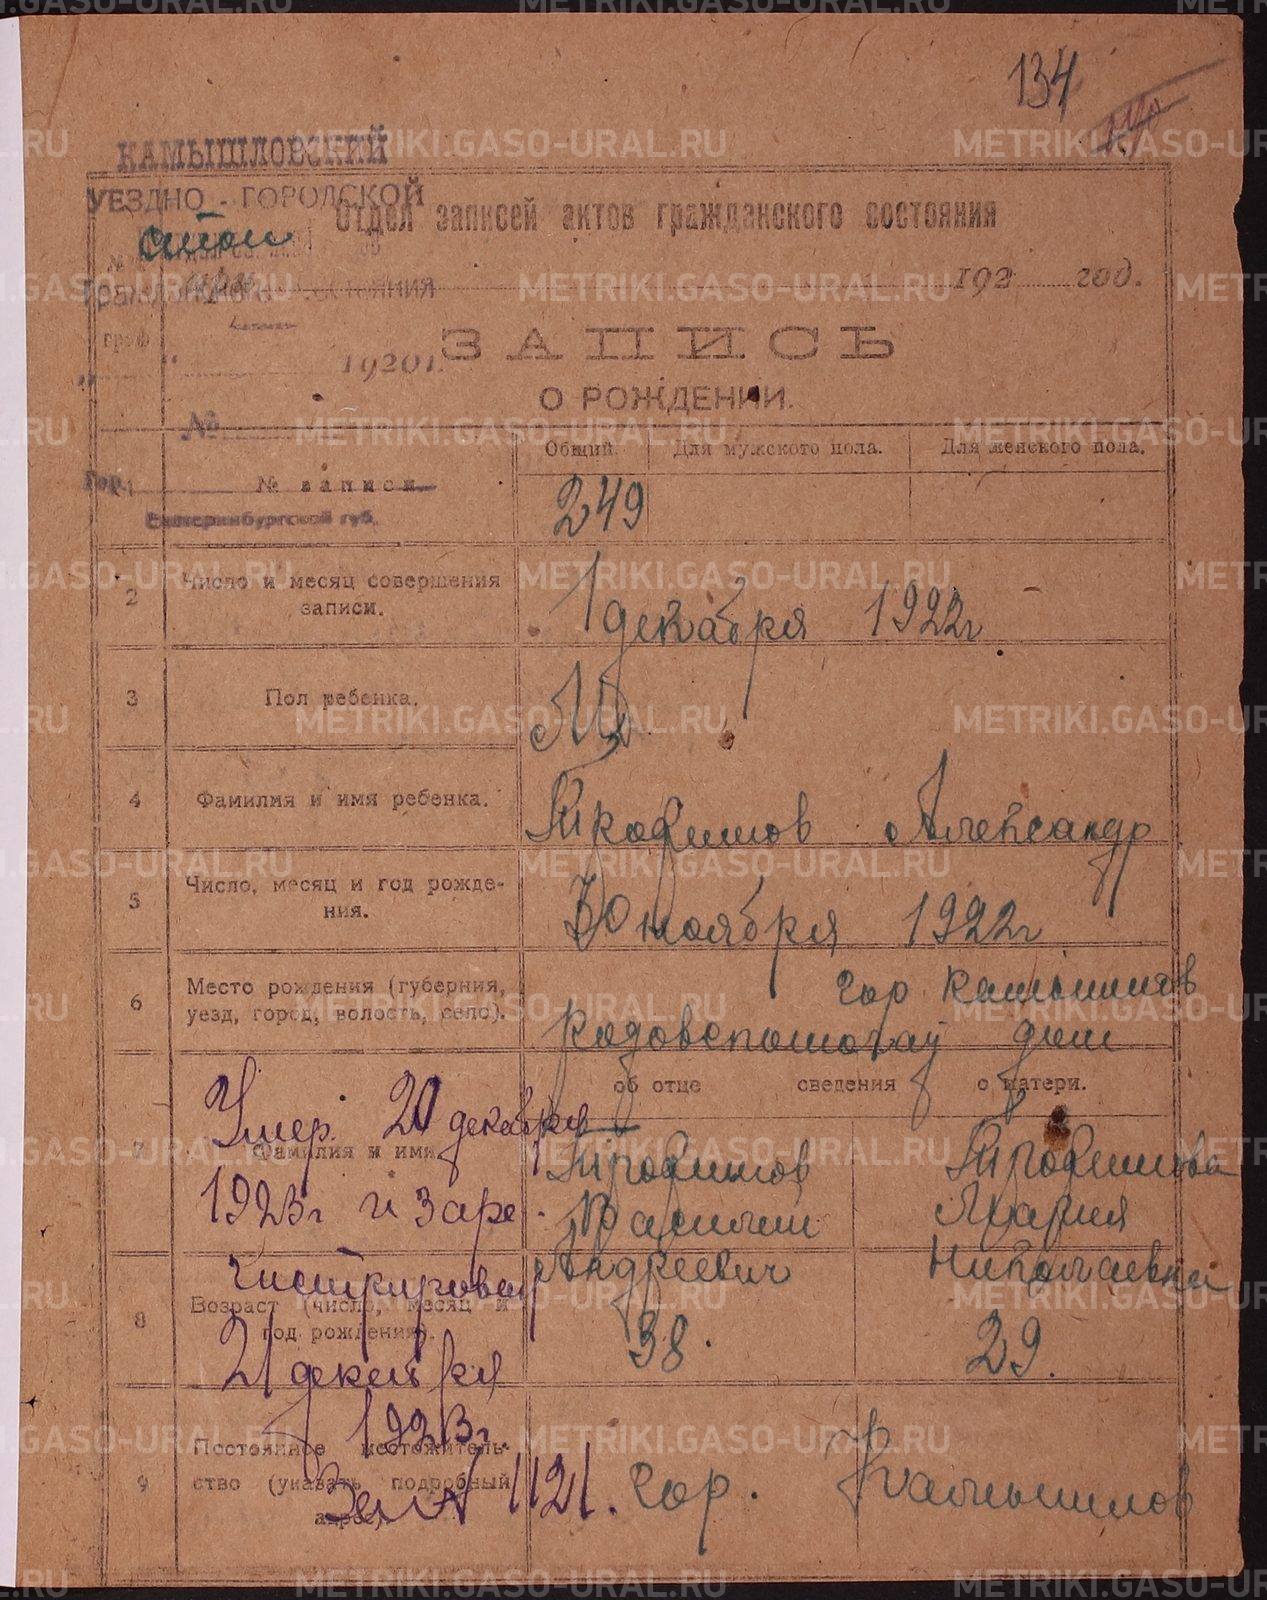 134
КАМЫШЛОВСКИЙ
УЕЗДНО - ГОРОДСКОЙ
Отдел записей актов гражданского состояния
192 год.
ЗАПИСЬ
192 г.
О РОЖДЕНИИ.
№
Общий. Для мужского пола. Для женского пола.
Гор.
№ записи.
249
Екатеринбургской губ.
2 Число и месяц совершения записи.
1 декабря 1922г
3 Пол ребенка.
М
4 Фамилия и имя ребенка.
Трофимов Александр
5 Число, месяц и год рождения.
30 ноября 1922г
6 Место рождения (губерния, уезд, город, волость, село).
гор Камышлов
дом
об отце сведения о матери.
7 Фамилия и имя
Трофимов
Андреевич
Трофимова
Мария
Николаевна
Умер. 20 декабря
1923г и заре-
гистрирован
21 декабря
1923г.
8 Возраст (число, месяц и год рождения).
38.
29.
9 Постоянное местожительство (указать подробный адрес).
№ 1121.
гор. Камышлов
METRIKI.GASO-URAL.RU